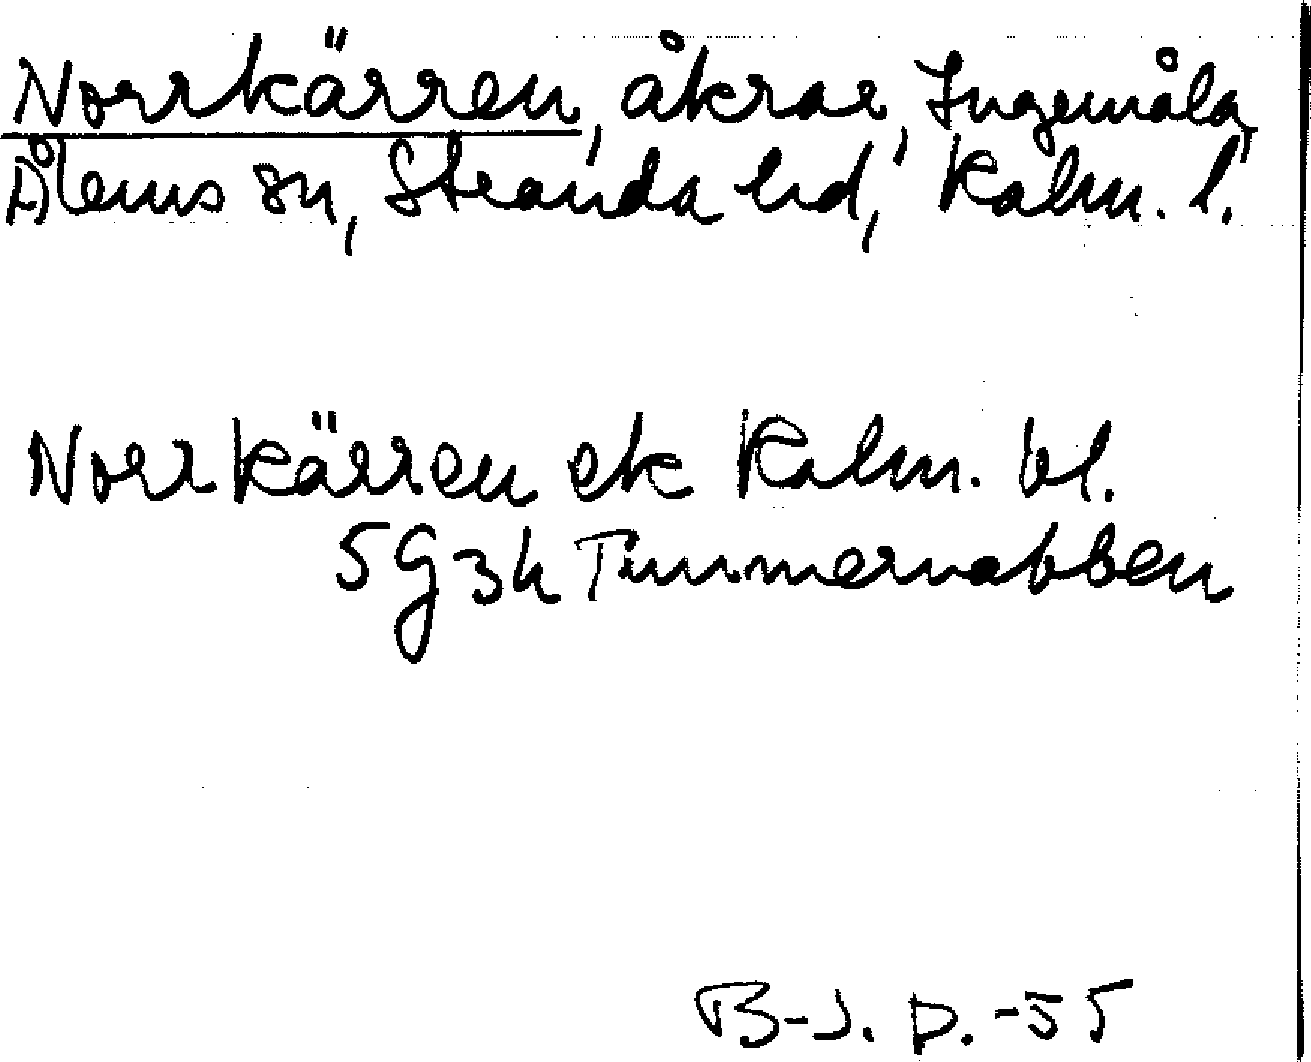 Norrkärren, åkrar, Ingemåla,
Ålems sn, Stranda hd, Kalm. l.
Norrkärren ek Kalm. bl.
5G3h Timmernabben
B-J. D. -55